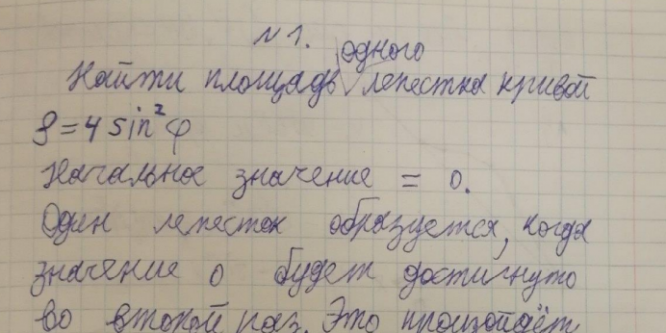 №1.
одного
Найти площадь лепестка кривой
ρ=4 sin²φ
Начальное значение = 0.
Один лепесток образуется, когда
значение 0 будет достигнуто
во второй раз. Это произойдёт